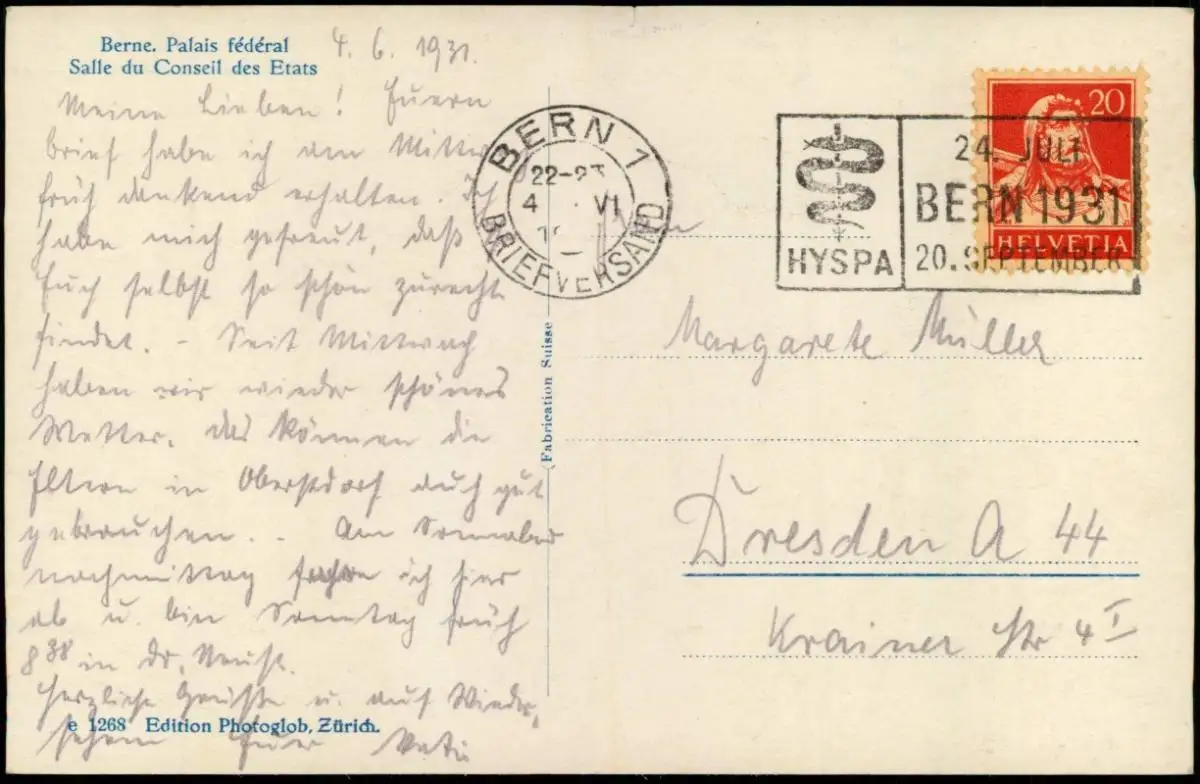 Berne. Palais fédéral
Salle du Conseil des Etats
4. 6. 1931.
Meine Lieben! Euern
brief habe ich am Mittw
früh dankend erhalten. Ich
habe mich gefreut, daß
Euch selbst so schön zurecht
findet. - Seit Mittwoch
haben wir wieder schönes
Wetter. das können die
Eltern in Oberstdorf auch gut
gebrauchen. - Am Sonnabend
nachmittag fahre ich hier
ab u. bin Sonntag früh
8 38 in Dr. Neust.
herzliche Grüße u. auf Wieder,
sehen Euer Vati
e 1268 Edition Photoglob, Zürich.
(Fabrication Suisse
BERN 1
22-2
4 VI
BRIEFVERSAND
HYSPA
24. JULI
BERN 1931
20. SEPTEMBER
20
HELVETIA
Margarete Müller
Dresden A 44
Krainer Str 4 I